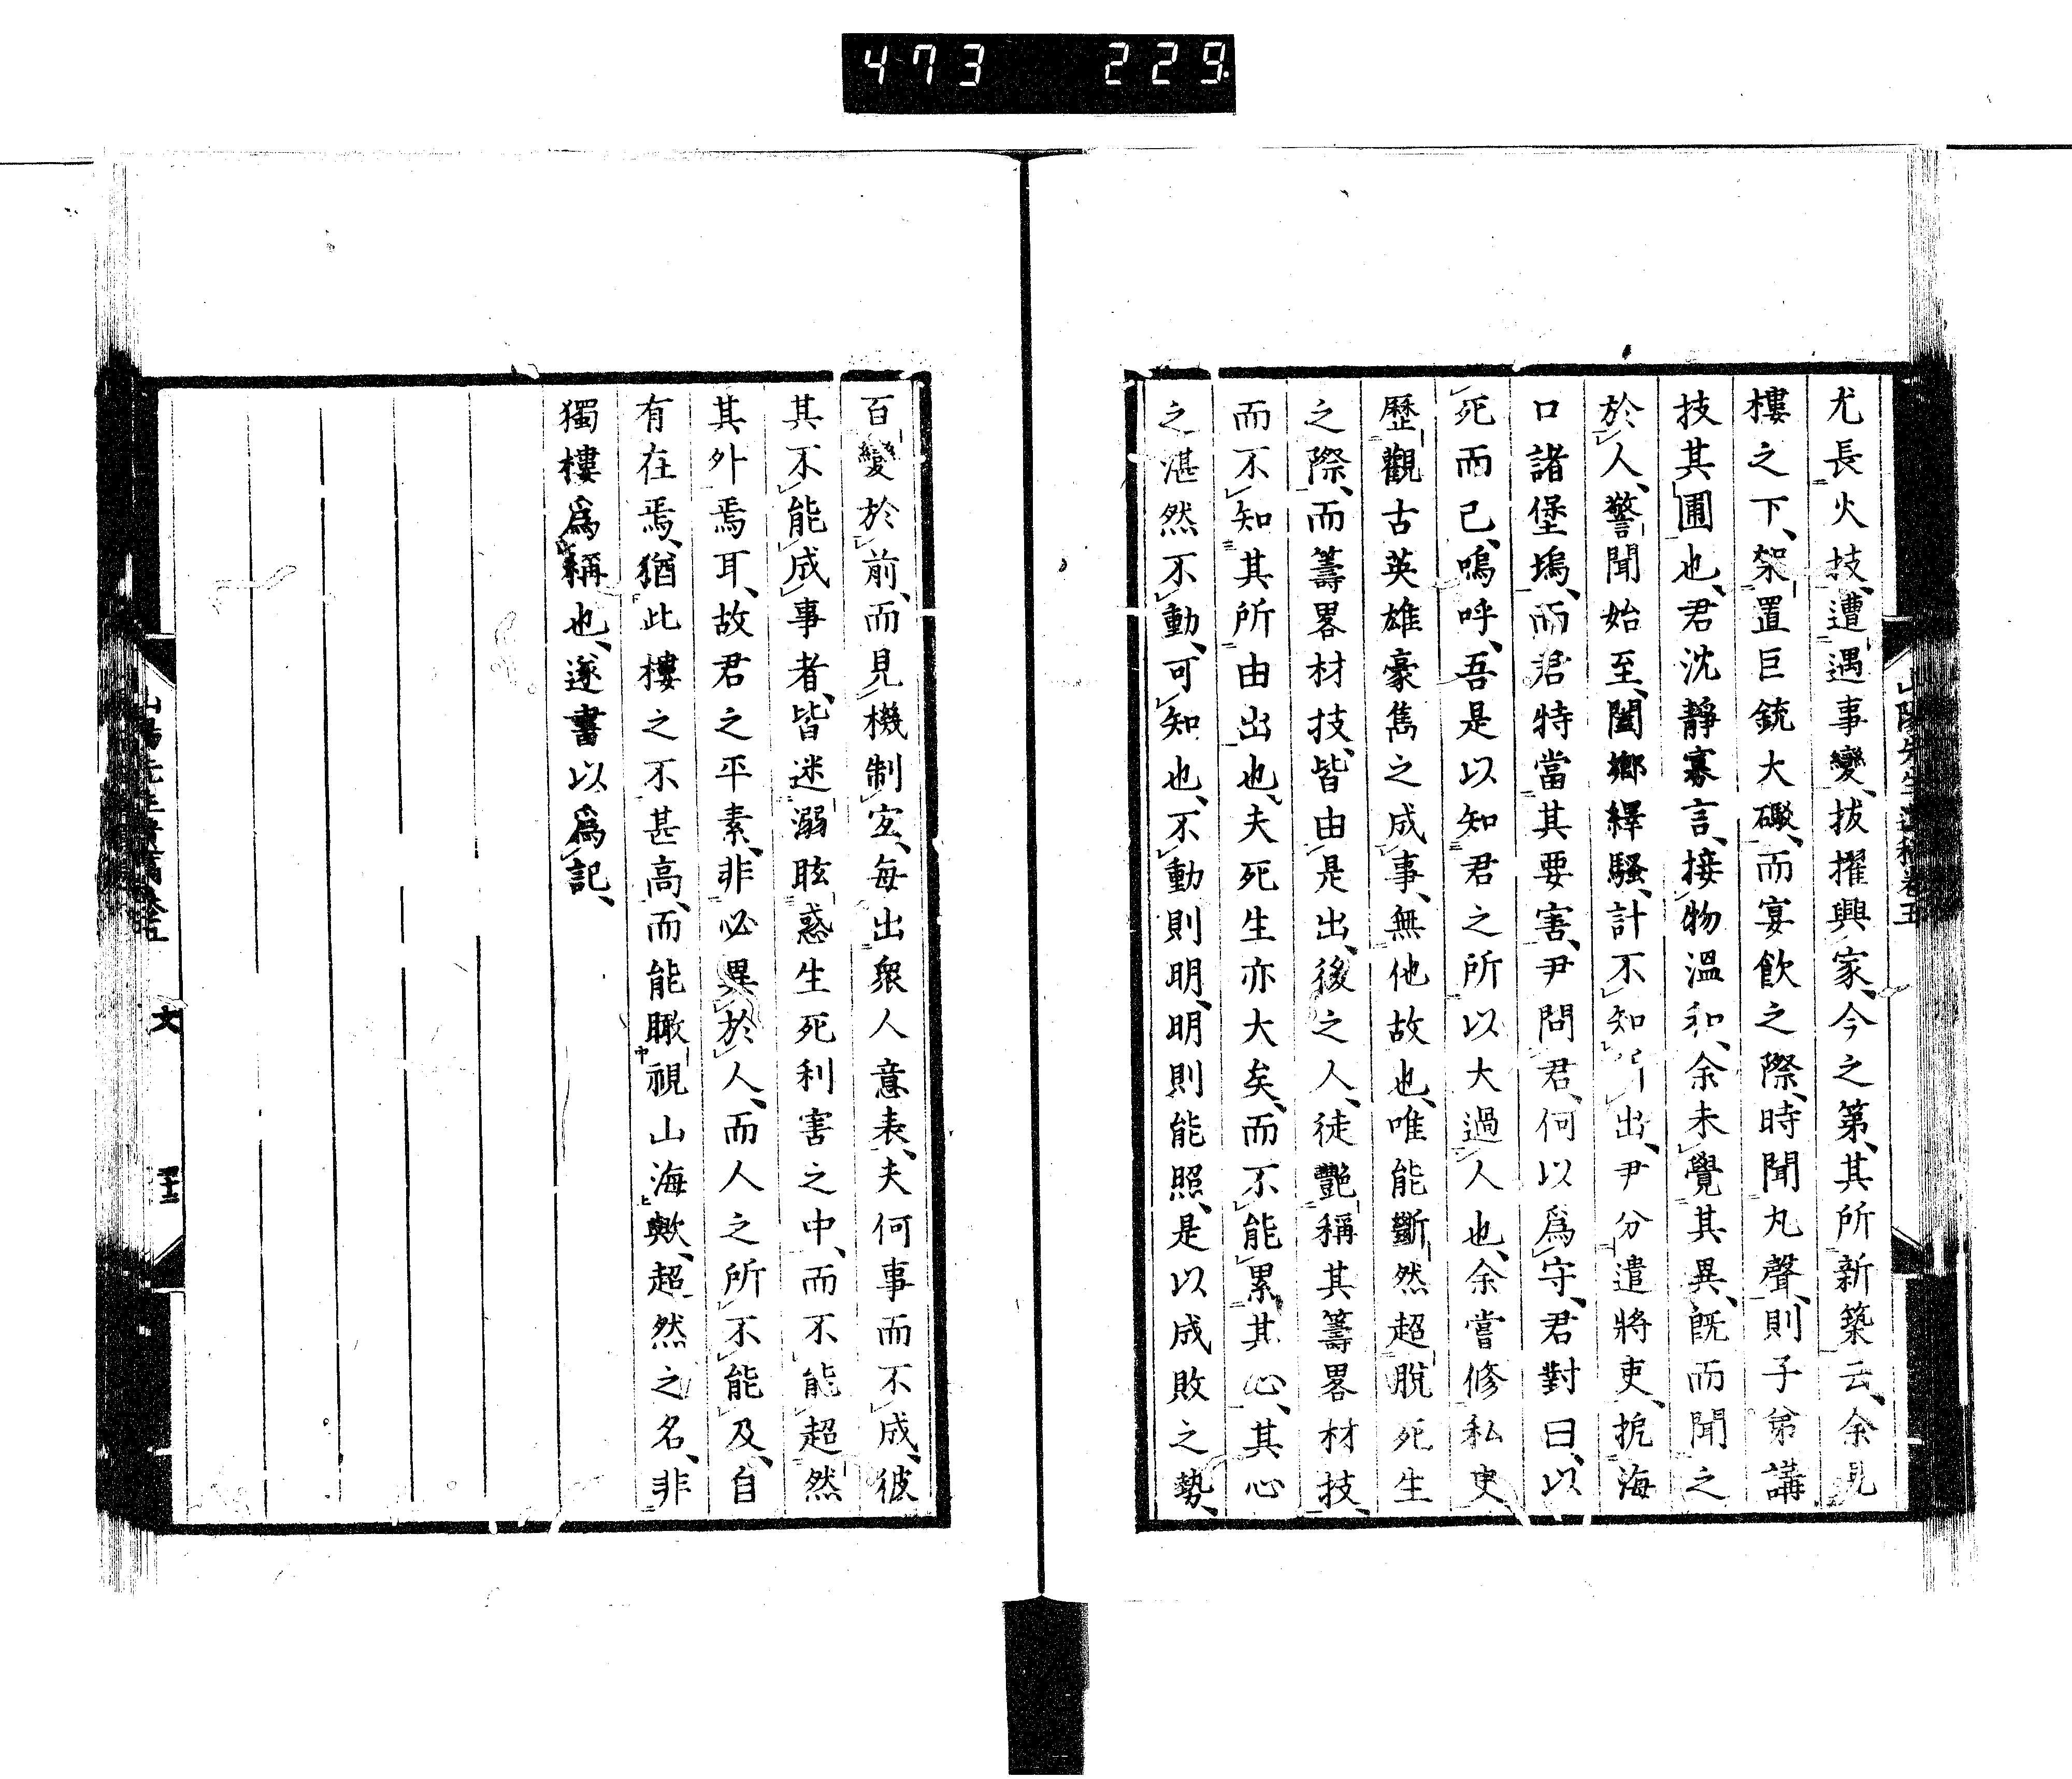 473 229
尤長火技、遭遇事變、拔擢興家、今之第、其所新築云、余見
樓之下、架置巨銃大礮、而宴飲之際、時聞丸聲、則子弟講
技其圃也、君沈靜寡言、接物溫和、余未覺其異、既而聞之
於人、警聞始至、闔鄉繹騷、計不知所出、尹分遣將吏、扼海
口諸堡塢、而君特當其要害、尹問君、何以爲守、君對曰、以
死而已、嗚呼、吾是以知君之所以大過人也、余嘗修私史
歷觀古英雄豪雋之成事、無他故也、唯能斷然超脫死生
之際、而籌畧材技、皆由是出、後之人、徒艷稱其籌畧材技、
而不知其所由出也、夫死生亦大矣、而不能累其心、其心
之湛然不動、可知也、不動則明、明則能照、是以成敗之勢、
山陽先生遺稿卷五
百變於前、而見機制宜、每出衆人意表、夫何事而不成、彼
其不能成事者、皆迷溺眩惑生死利害之中、而不能超然
其外焉耳、故君之平素、非必異於人、而人之所不能及、自
有在焉、猶此樓之不甚高、而能瞰視山海歟、超然之名、非
獨樓爲稱也、遂書以爲記、
山陽先生遺稿卷五 文